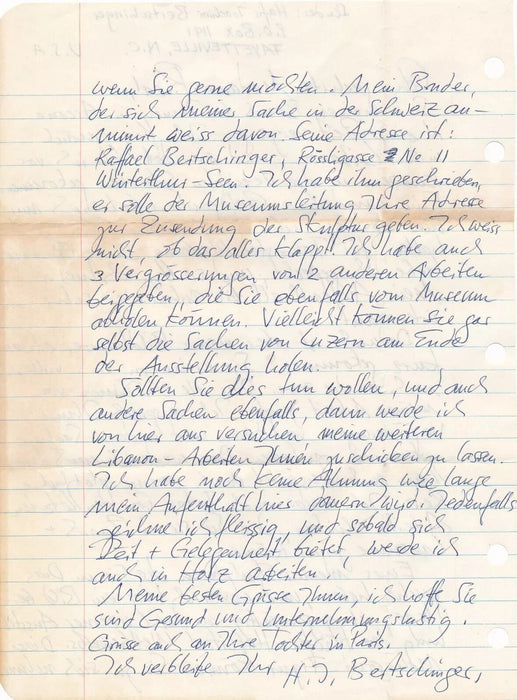 Sender: Hans Joachim Bertschinger
P.O. Box 1191
FAYETTEVILLE, N.C. U.S.A
wenn Sie gerne möchten. Mein Bruder,
der sich meiner Sache in der Schweiz an-
nimmt weiss davon. Seine Adresse ist:
Raffael Bertschinger, Rössligasse No 11
Winterthur-Seen. Ich habe ihm geschrieben,
er solle der Museumsleitung Ihre Adresse
zur Zusendung der Skulptur geben. Ich weiss
nicht, ob das alles klappt. Ich habe auch
3 Vergrösserungen von 2 anderen Arbeiten
beigegeben, die Sie ebenfalls vom Museum
abholen können. Vielleicht können Sie gar
selbst die Sachen von Luzern am Ende
der Ausstellung holen.
Sollten Sie dies tun wollen, und auch
andere Sachen ebenfalls, dann werde ich
von hier aus versuchen, meine weiteren
Libanon-Arbeiten Ihnen zuschicken zu lassen.
Ich habe noch keine Ahnung wie lange
mein Aufenthalt hier dauern wird. Jedenfalls
zeichne ich fleissig, und sobald sich
Zeit + Gelegenheit bietet, werde ich
auch in Holz arbeiten.
Meine besten Grüsse Ihnen, ich hoffe Sie
sind Gesund und Unternehmungslustig.
Grüsse auch an Ihre Tochter in Paris.
Ich verbleibe Ihr H. J. Bertschinger,